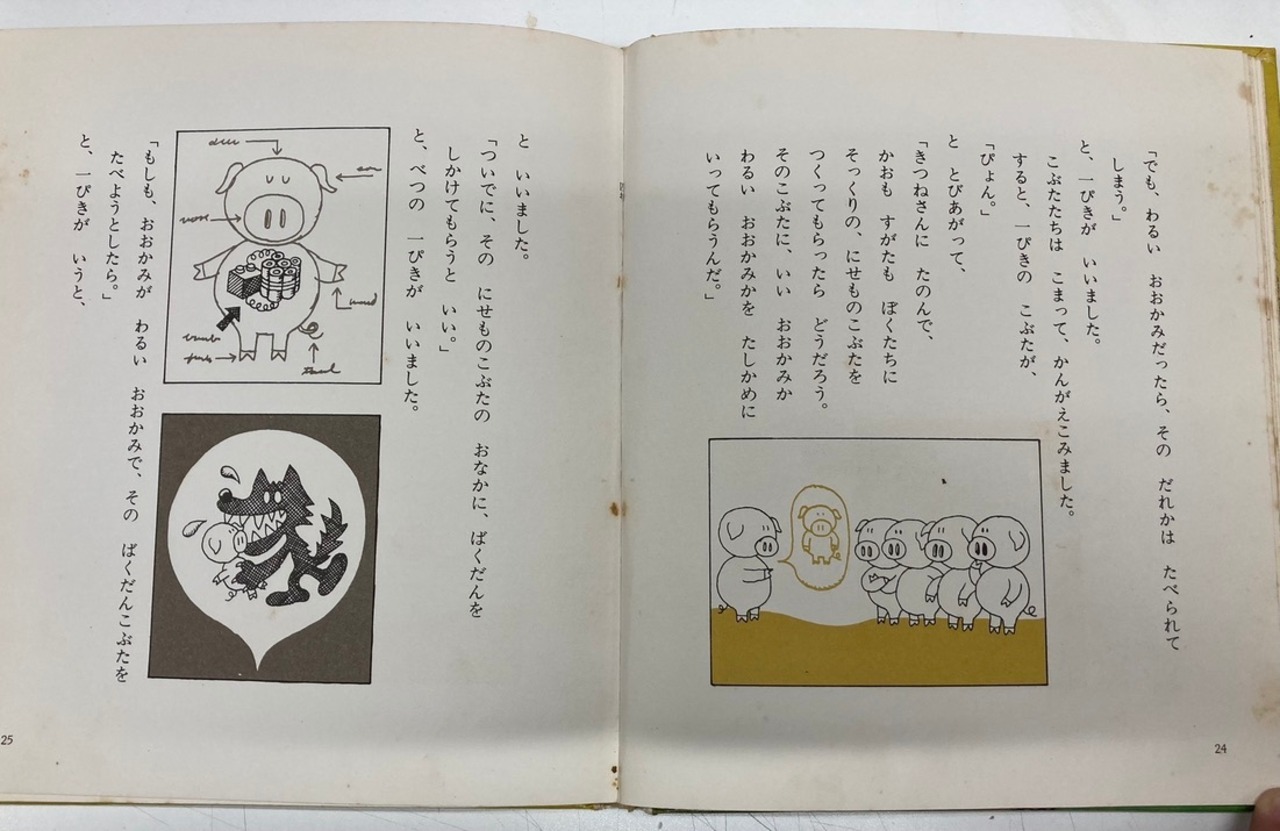 「でも、わるい　おおかみだったら、その　だれかは　たべられて
しまう。」
と、一ぴきが　いいました。
こぶたたちは　こまって、かんがえこみました。
すると、一ぴきの　こぶたが、
「ぴょん。」
と　とびあがって、
「きつねさんに　たのんで、
かおも　すがたも　ぼくたちに
そっくりの、にせものこぶたを
つくってもらったら　どうだろう。
そのこぶたに、いい　おおかみか
わるい　おおかみかを　たしかめに
いってもらうんだ。」
24
と　いいました。
「ついでに、その　にせものこぶたの　おなかに、ばくだんを
しかけてもらうと　いい。」
と、べつの　一ぴきが　いいました。
「もしも、おおかみが　わるい　おおかみで、その　ばくだんこぶたを
たべようとしたら。」
と、一ぴきが　いうと、
25